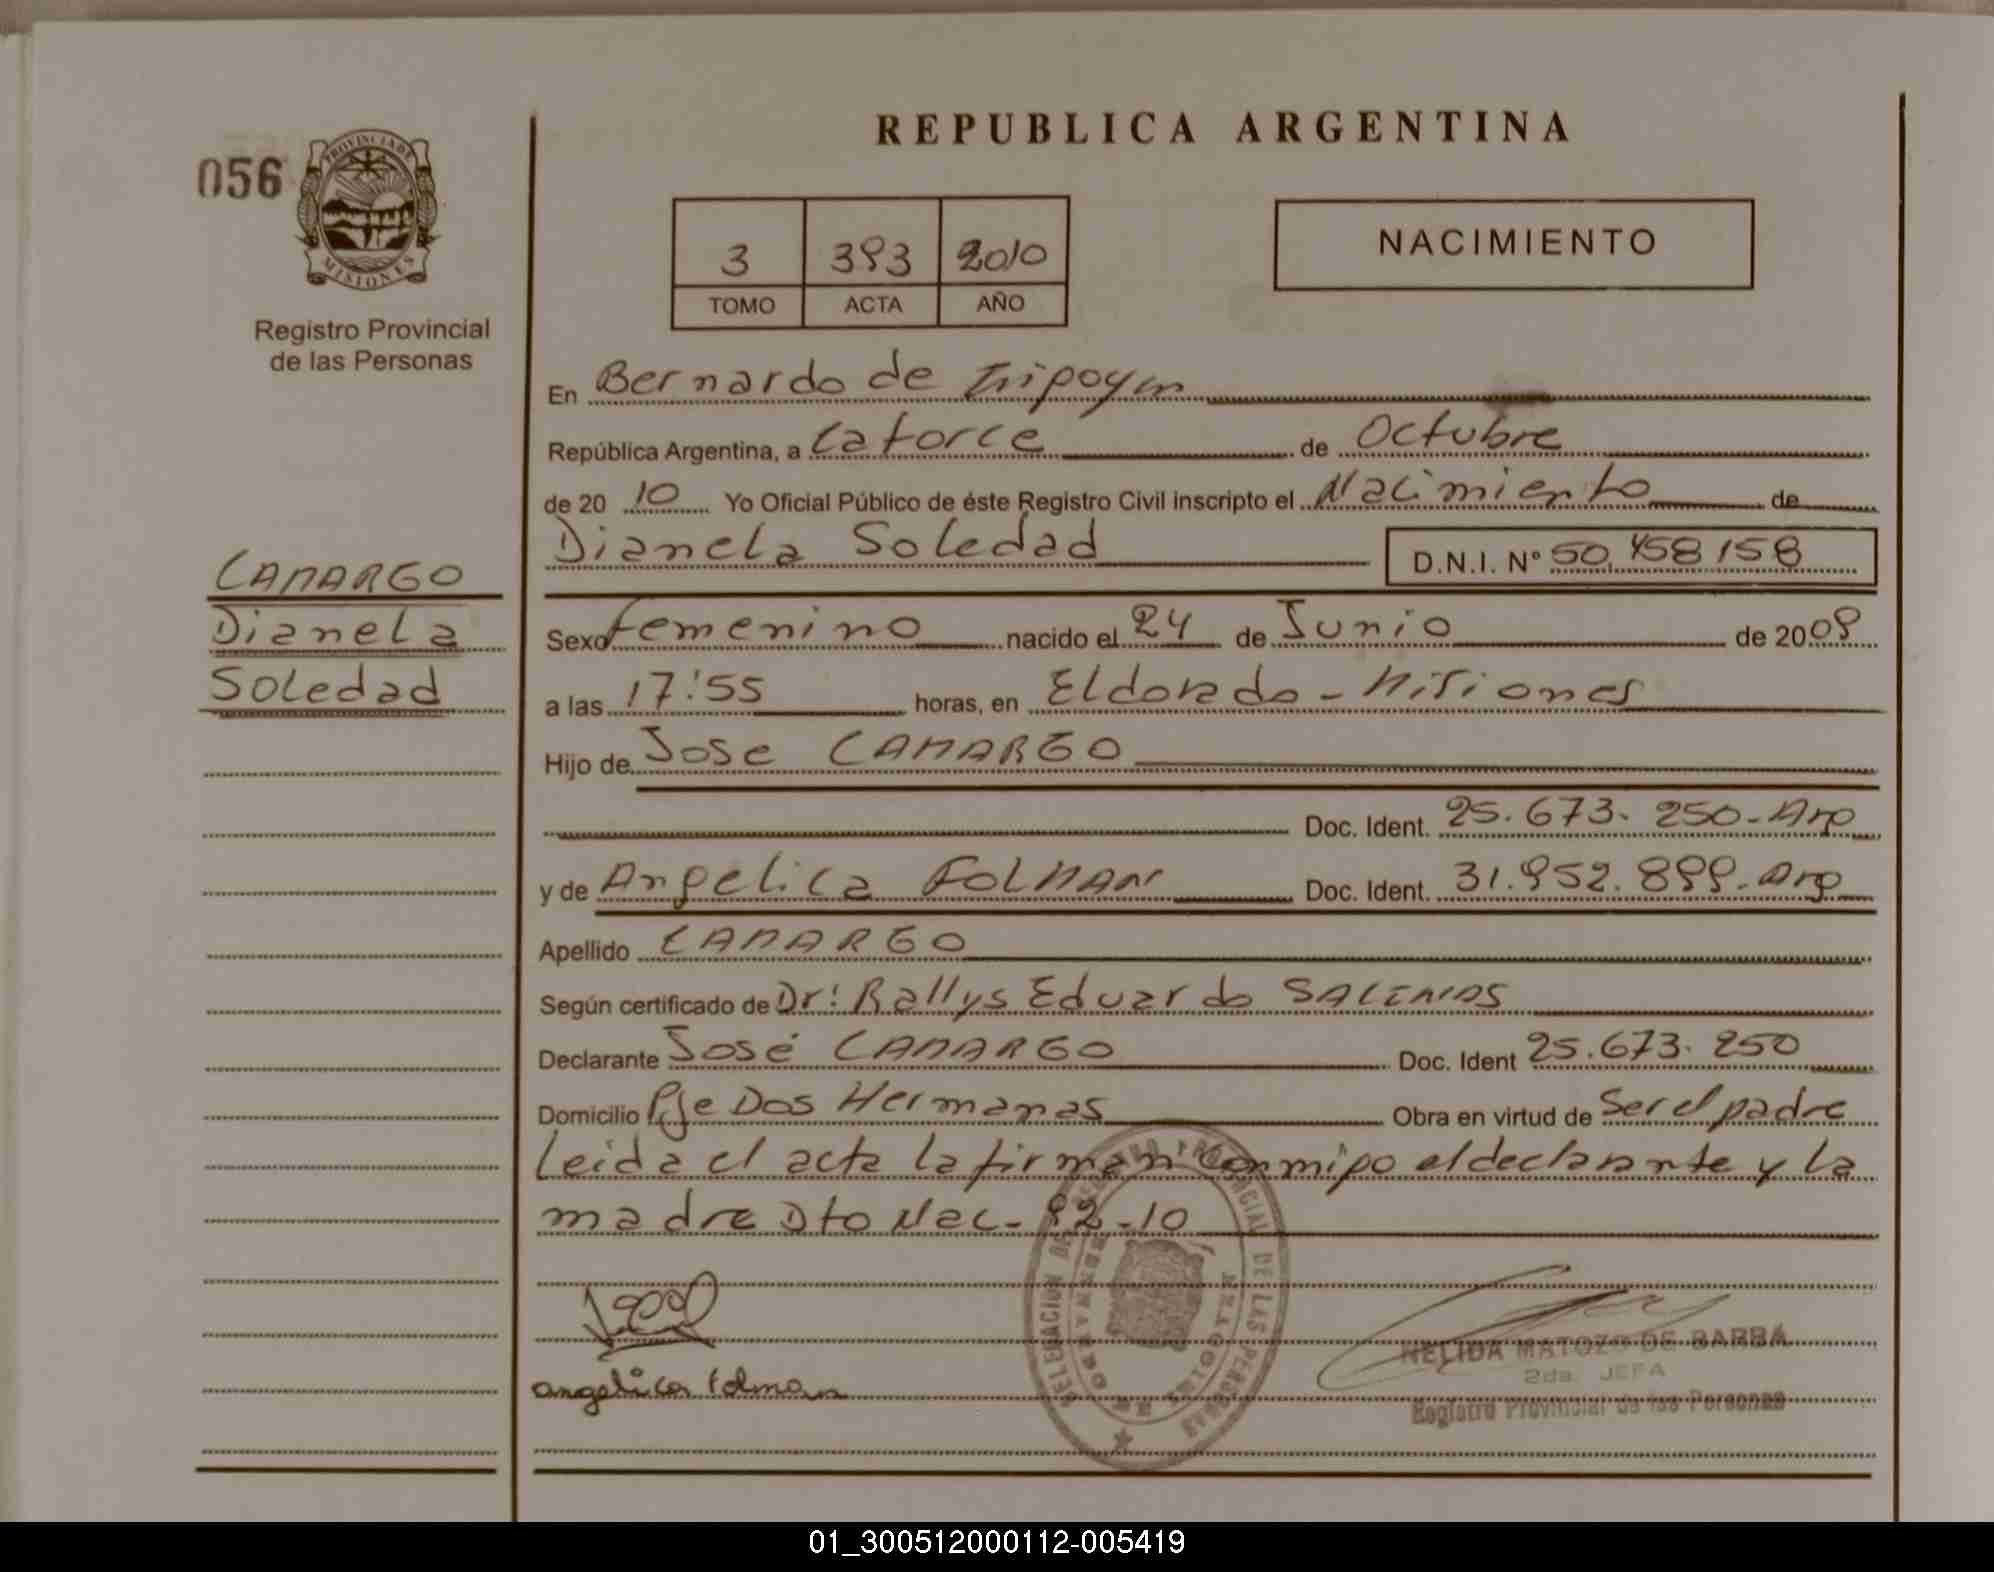 REPUBLICA ARGENTINA
056
PROVINCIA DE
MISIONES
Registro Provincial
de las Personas
3 393 2010
TOMO ACTA AÑO
NACIMIENTO
En Bernardo de Irigoyen
República Argentina, a Catorce de Octubre
de 20 10 Yo Oficial Público de éste Registro Civil inscripto el Nacimiento de
Dianela Soledad D.N.I. Nº 50.458158
CAMARGO
Dianela
Soledad
Sexo femenino nacido el 24 de Junio de 2009
a las 17:55 horas, en Eldorado - Misiones
Hijo de Jose CAMARGO
Doc. Ident. 25.673.250-Arg
y de Angelica FOLMAN Doc. Ident. 31.952.899-Arg
Apellido CAMARGO
Según certificado de Dr: Rallys Eduardo SALINAS
Declarante José CAMARGO Doc. Ident 25.673.250
Domicilio Pje Dos Hermanas Obra en virtud de Ser el padre
Leida el acta la firman conmigo el declarante y la
madre Dto Nac- 92-10
DELEGACION DE REGISTRO PROVINCIAL DE LAS PERSONAS
BERNARDO DE IRIGOYEN
angelica folman
NELIDA MATOZO DE BARBA
2da. JEFA
Registro Provincial de las Personas
01_300512000112-005419